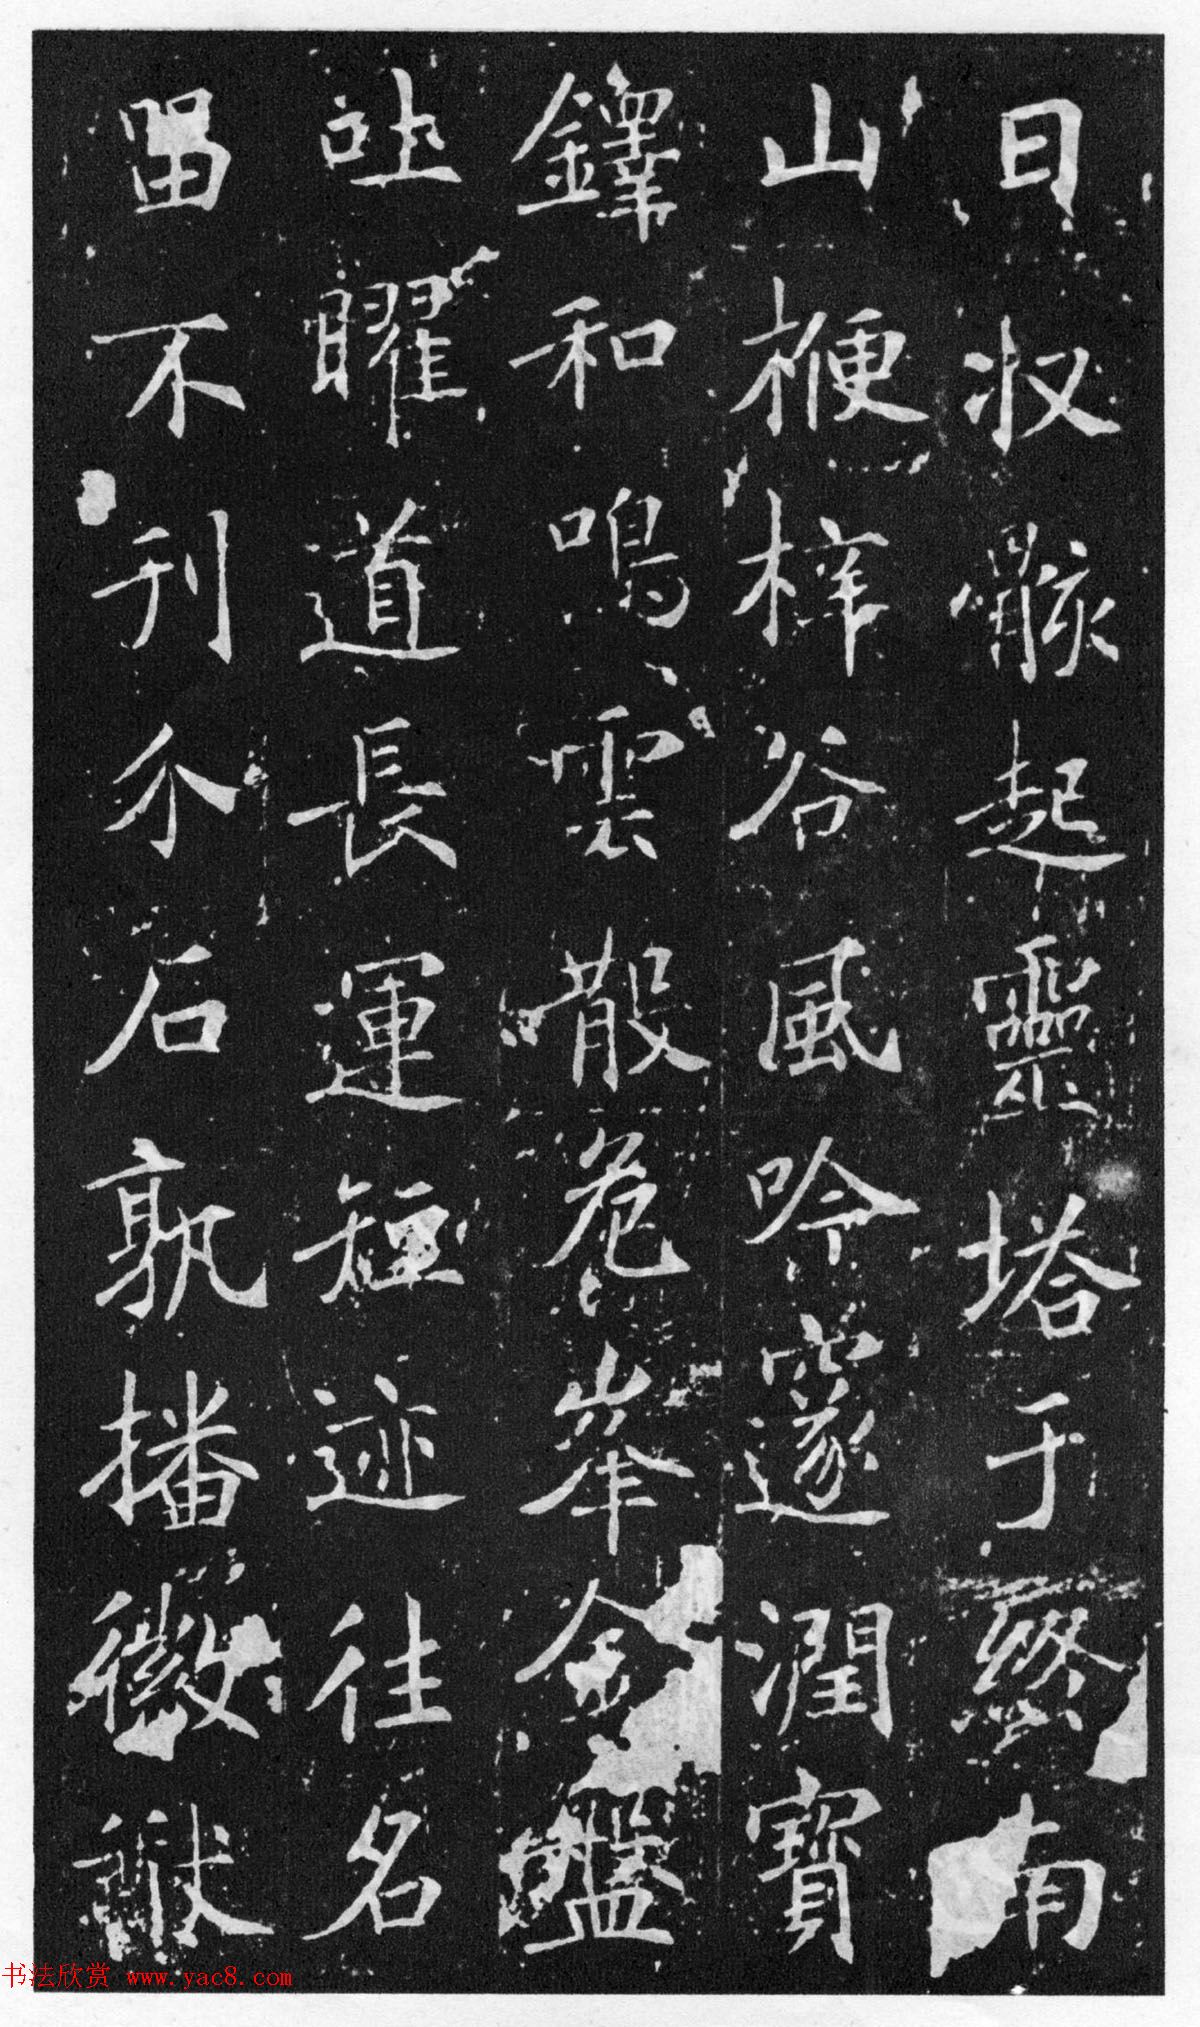 日収骸起靈塔于終南
山楩梓谷風吟邃澗寶
鐸和鳴雲散危峯金盤
吐曜道長運短迹往名
留不刊介石孰播徽猷
书法欣赏 www.yac8.com